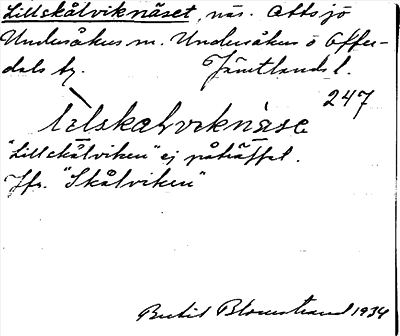 Lillskålviknäset, näs. Ottsjö
Undersåkers sn. Undersåkers o Offer-
dals tg. Jämtlands l.
247
lìlskaḷvıknàse
"Lillskålviken" ej påträffat.
Jfr. "Skålviken"
Bertil Blomstrand 1934